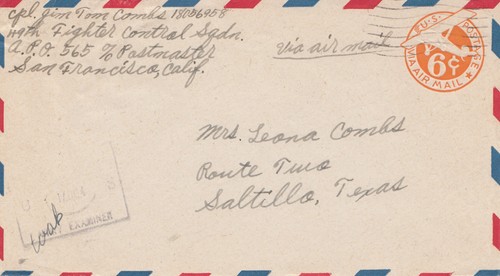 Cpl. Jim Tom Combs 18056958
49th Fighter Control Sqdn.
A.P.O. 565 c/o Postmaster
San Francisco, Calif.
via air mail
U.S. POSTAGE
6¢
VIA AIR MAIL
Mrs. Leona Combs
Route Two
Saltillo, Texas
EXAMINER